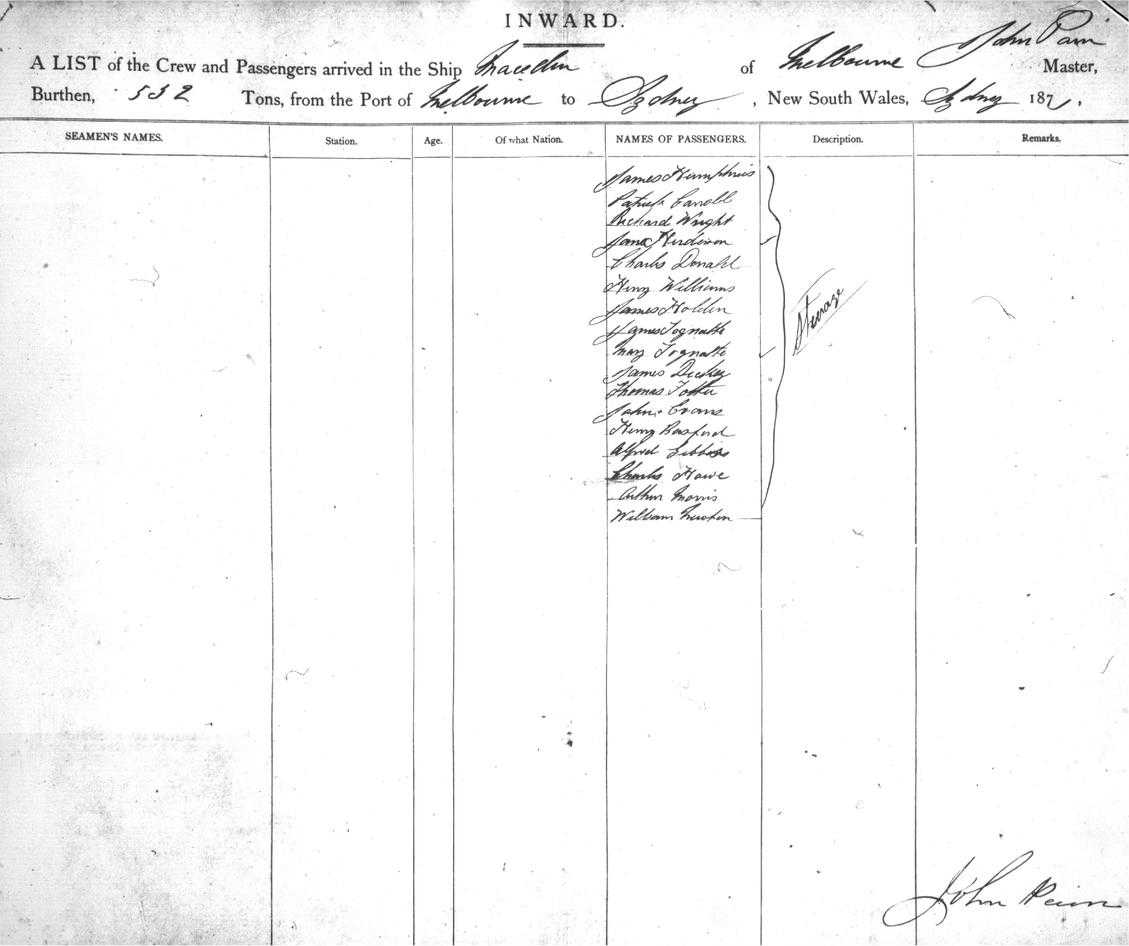 INWARD.
John Pain
A LIST of the Crew and Passengers arrived in the Ship Macedon of Melbourne Master,
Burthen, 532 Tons, from the Port of Melbourne to Sydney, New South Wales, Sydney 187
SEAMEN'S NAMES. Station. Age. Of what Nation. NAMES OF PASSENGERS. Description. Remarks.
James Humphries
Patrick Carroll
Richard Wright
Jane
Charles Donald
Henry Williams
James Holden
James Tognatte
Mary Tognatte
Steerage
James
Thomas
John Evans
Henry Basford
Alfred Gibbins
Charles Howe
Arthur Morris
William
John Pain